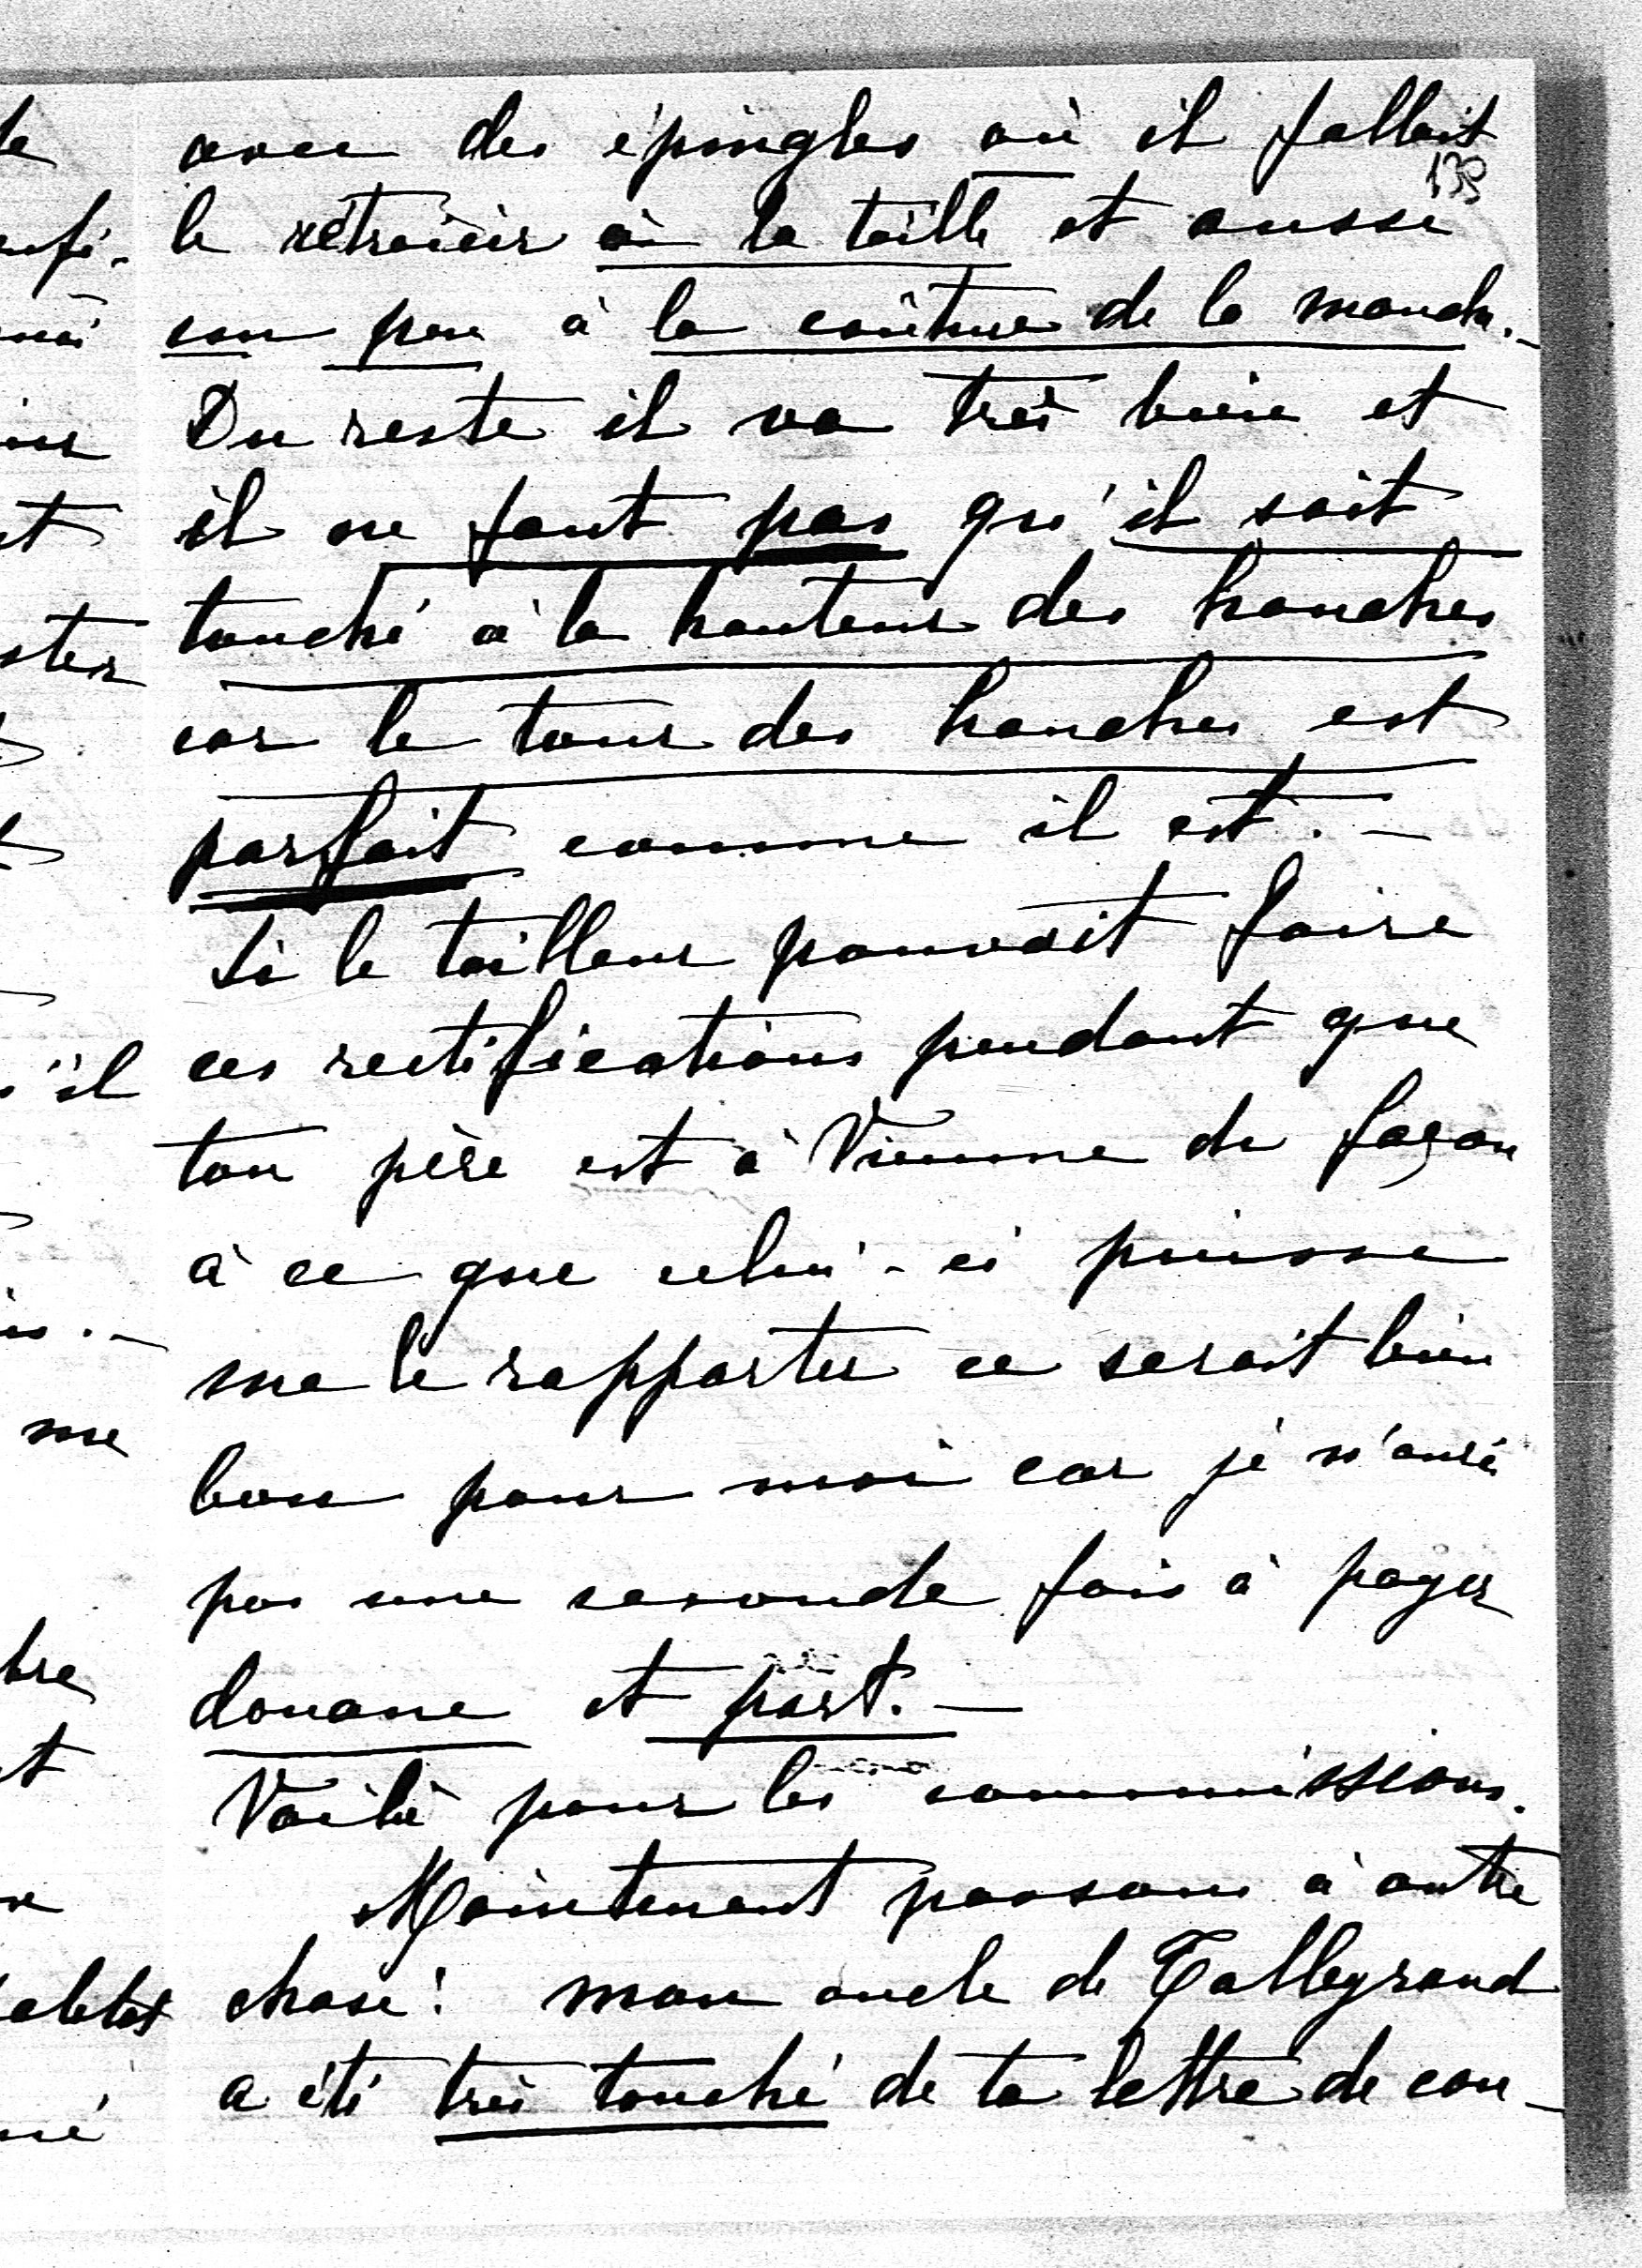 avec des épingles où il fallait
139
le rétrécir à la taille et aussi
un peu à la couture de la manche.-
Du reste il va très bien et
il ne faut pas qu'il soit
touché à la hauteur des hanches
car le tour des hanches est
parfait comme il est.-
Si le tailleur pouvait faire
ces rectifications pendant que
ton père est à Vienne de façon
à ce que celui-ci puisse
me le rapporter ce serait bien
bon pour moi car je n'aurai
pas une seconde fois à payer
douane et port.-
Voilà pour les commissions.
Maintenant passons à autre
chose: mon oncle de Talleyrand
a été très touché de ta lettre de con-